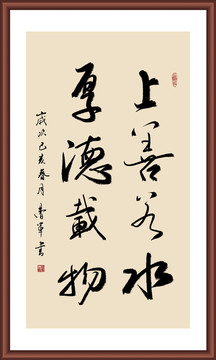 上善若水
厚德載物
歲次己亥春月曹軍書